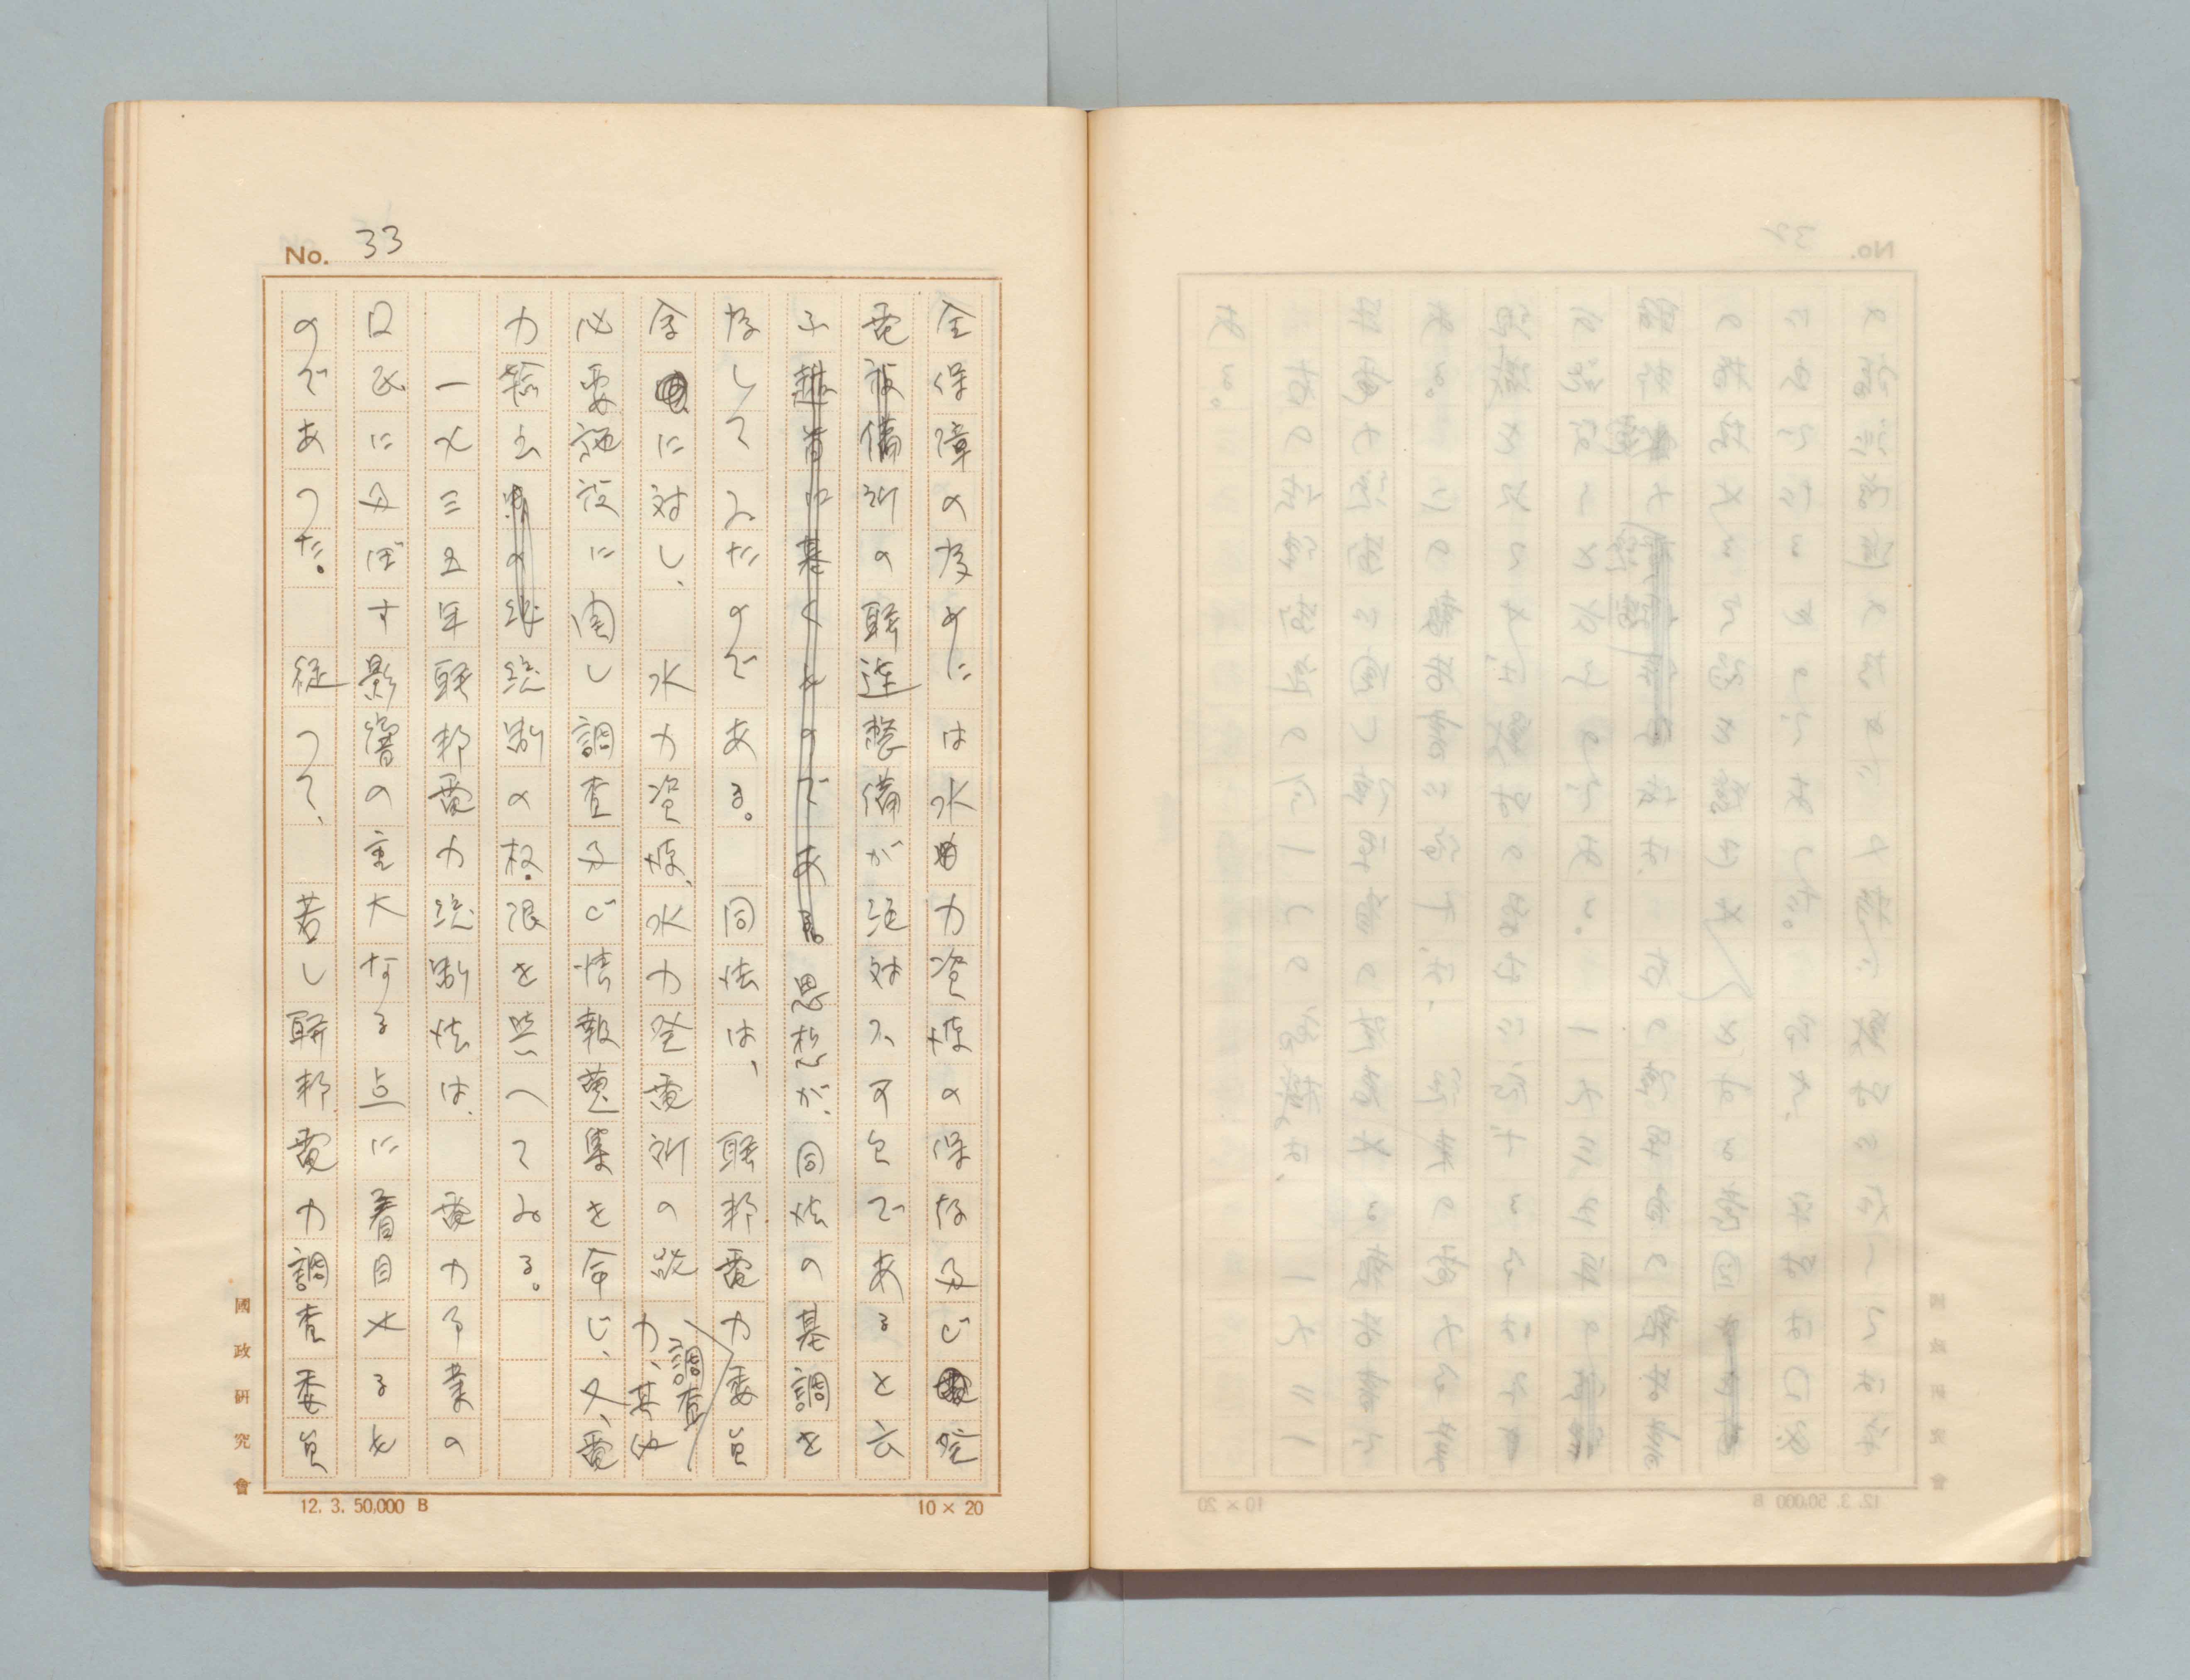 No. 33
全保障の為めには水力資源の保存及び発
電設備所の聯連整備が絶対不可欠であると云
ふ趣旨に基くものである。思想が、同法の基調を
為してゐたのである。 同法は、 聯邦電力委員
会に対し、 水力資源、水力発電所の能
調査
力、其他
必要施設に関し調査及び情報蒐集を命じ、又、電
力輸出の統制の権限を与へてゐる。
一九三五年聯邦電力統制法は、 電力事業の
口民に及ぼす影響の重大なる点に着目せるも
のであつた。 従つて、 若し聯邦電力調査委員
國政研究會
12. 3. 50,000 B
10 × 20